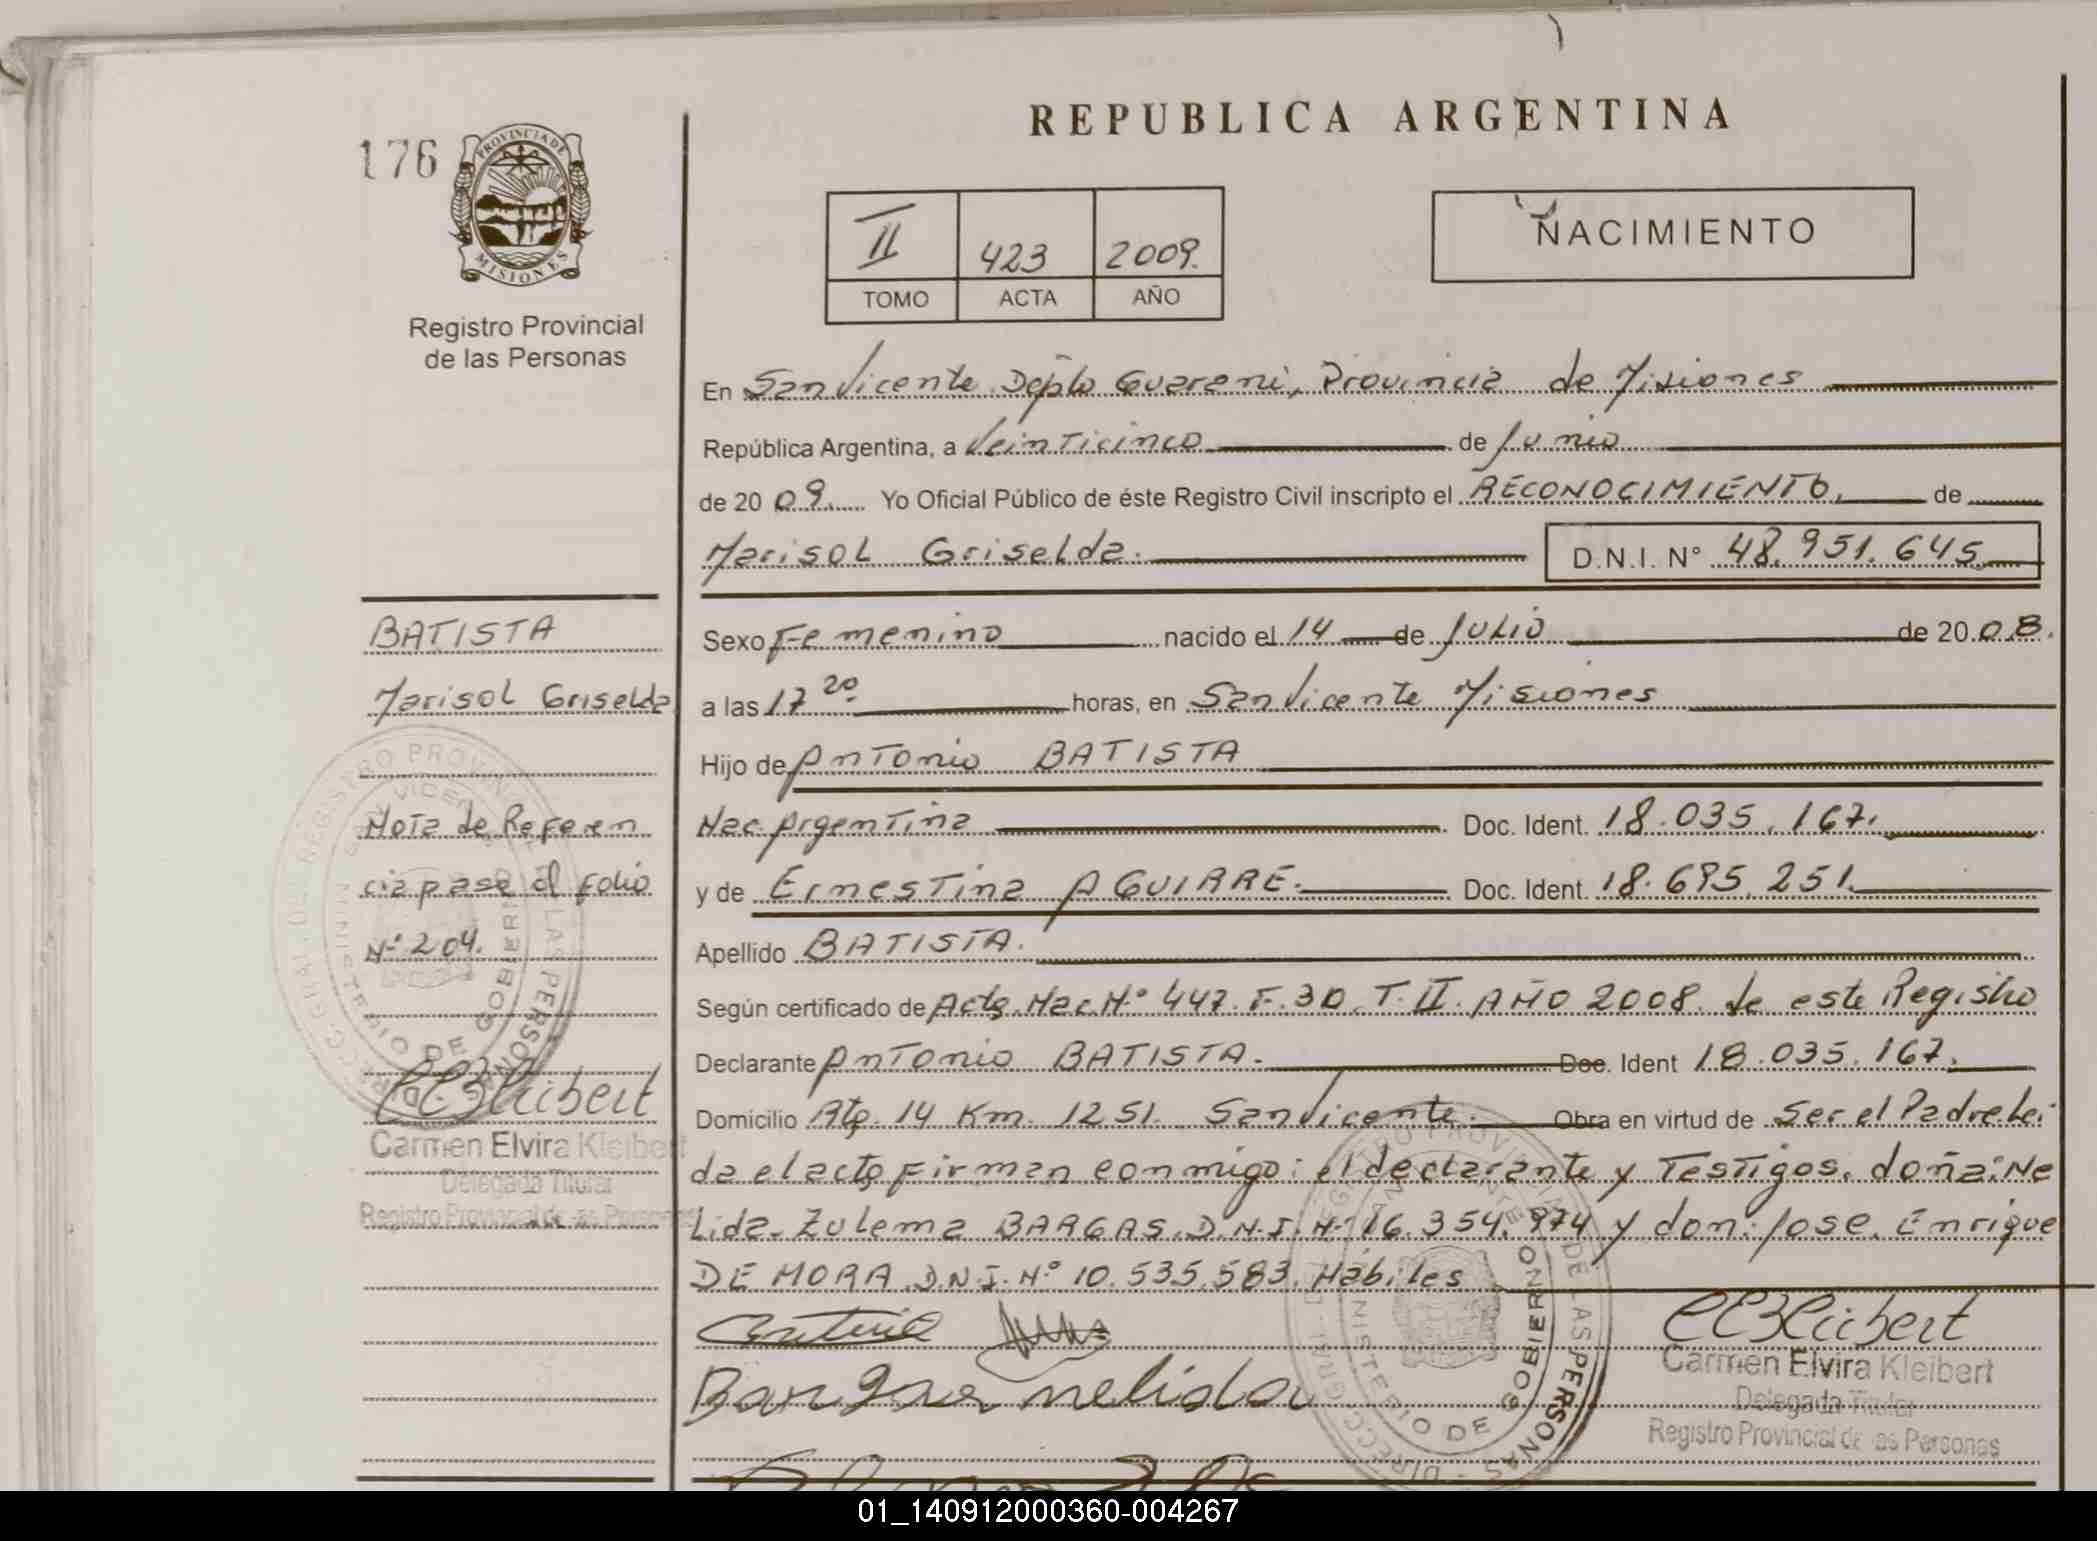 REPUBLICA ARGENTINA
176
PROVINCIA DE
MISIONES
Registro Provincial
de las Personas
II 423 2009.
TOMO ACTA AÑO
NACIMIENTO
En San Vicente Dpto Guarani, Provincia de Misiones
República Argentina, a Veinticinco de Junio
de 20 09. Yo Oficial Público de éste Registro Civil inscripto el RECONOCIMIENTO. de
Marisol Griselda. D.N.I. N° 48.951.645
Sexo Femenino nacido el 14 de Julio de 20 08.
a las 17 20 horas, en San Vicente Misiones
Hijo de Antonio BATISTA
Nac. Argentina Doc. Ident. 18.035.167.
y de Ernestina AGUIRRE. Doc. Ident. 18.695.251.
Apellido BATISTA.
Según certificado de Acta. Nac. N.° 447. F. 30. T. II. AÑO 2008. de este Registro
Declarante Antonio BATISTA. Doc. Ident 18.035.167.
Domicilio Rta. 14 Km. 1251. San Vicente. Obra en virtud de Ser el Padre. Lei
da el acta firman conmigo: el declarante y Testigos. doña: Ne
Lida. Zulema BARGAS. D.N.I. N° 16.354.974 y don: Jose. Enrique
DE MORA. D.N.I. N° 10.535.583. Hábiles
Bargas nelida
CEKleibert
Carmen Elvira Kleibert
Delegada Titular
Registro Provincial de las Personas
BATISTA
Marisol Griselda
Nota de Referen
cia pase al folio
N° 204.
CEKleibert
Carmen Elvira Kleibert
Delegada Titular
Registro Provincial de las Personas
01_140912000360-004267